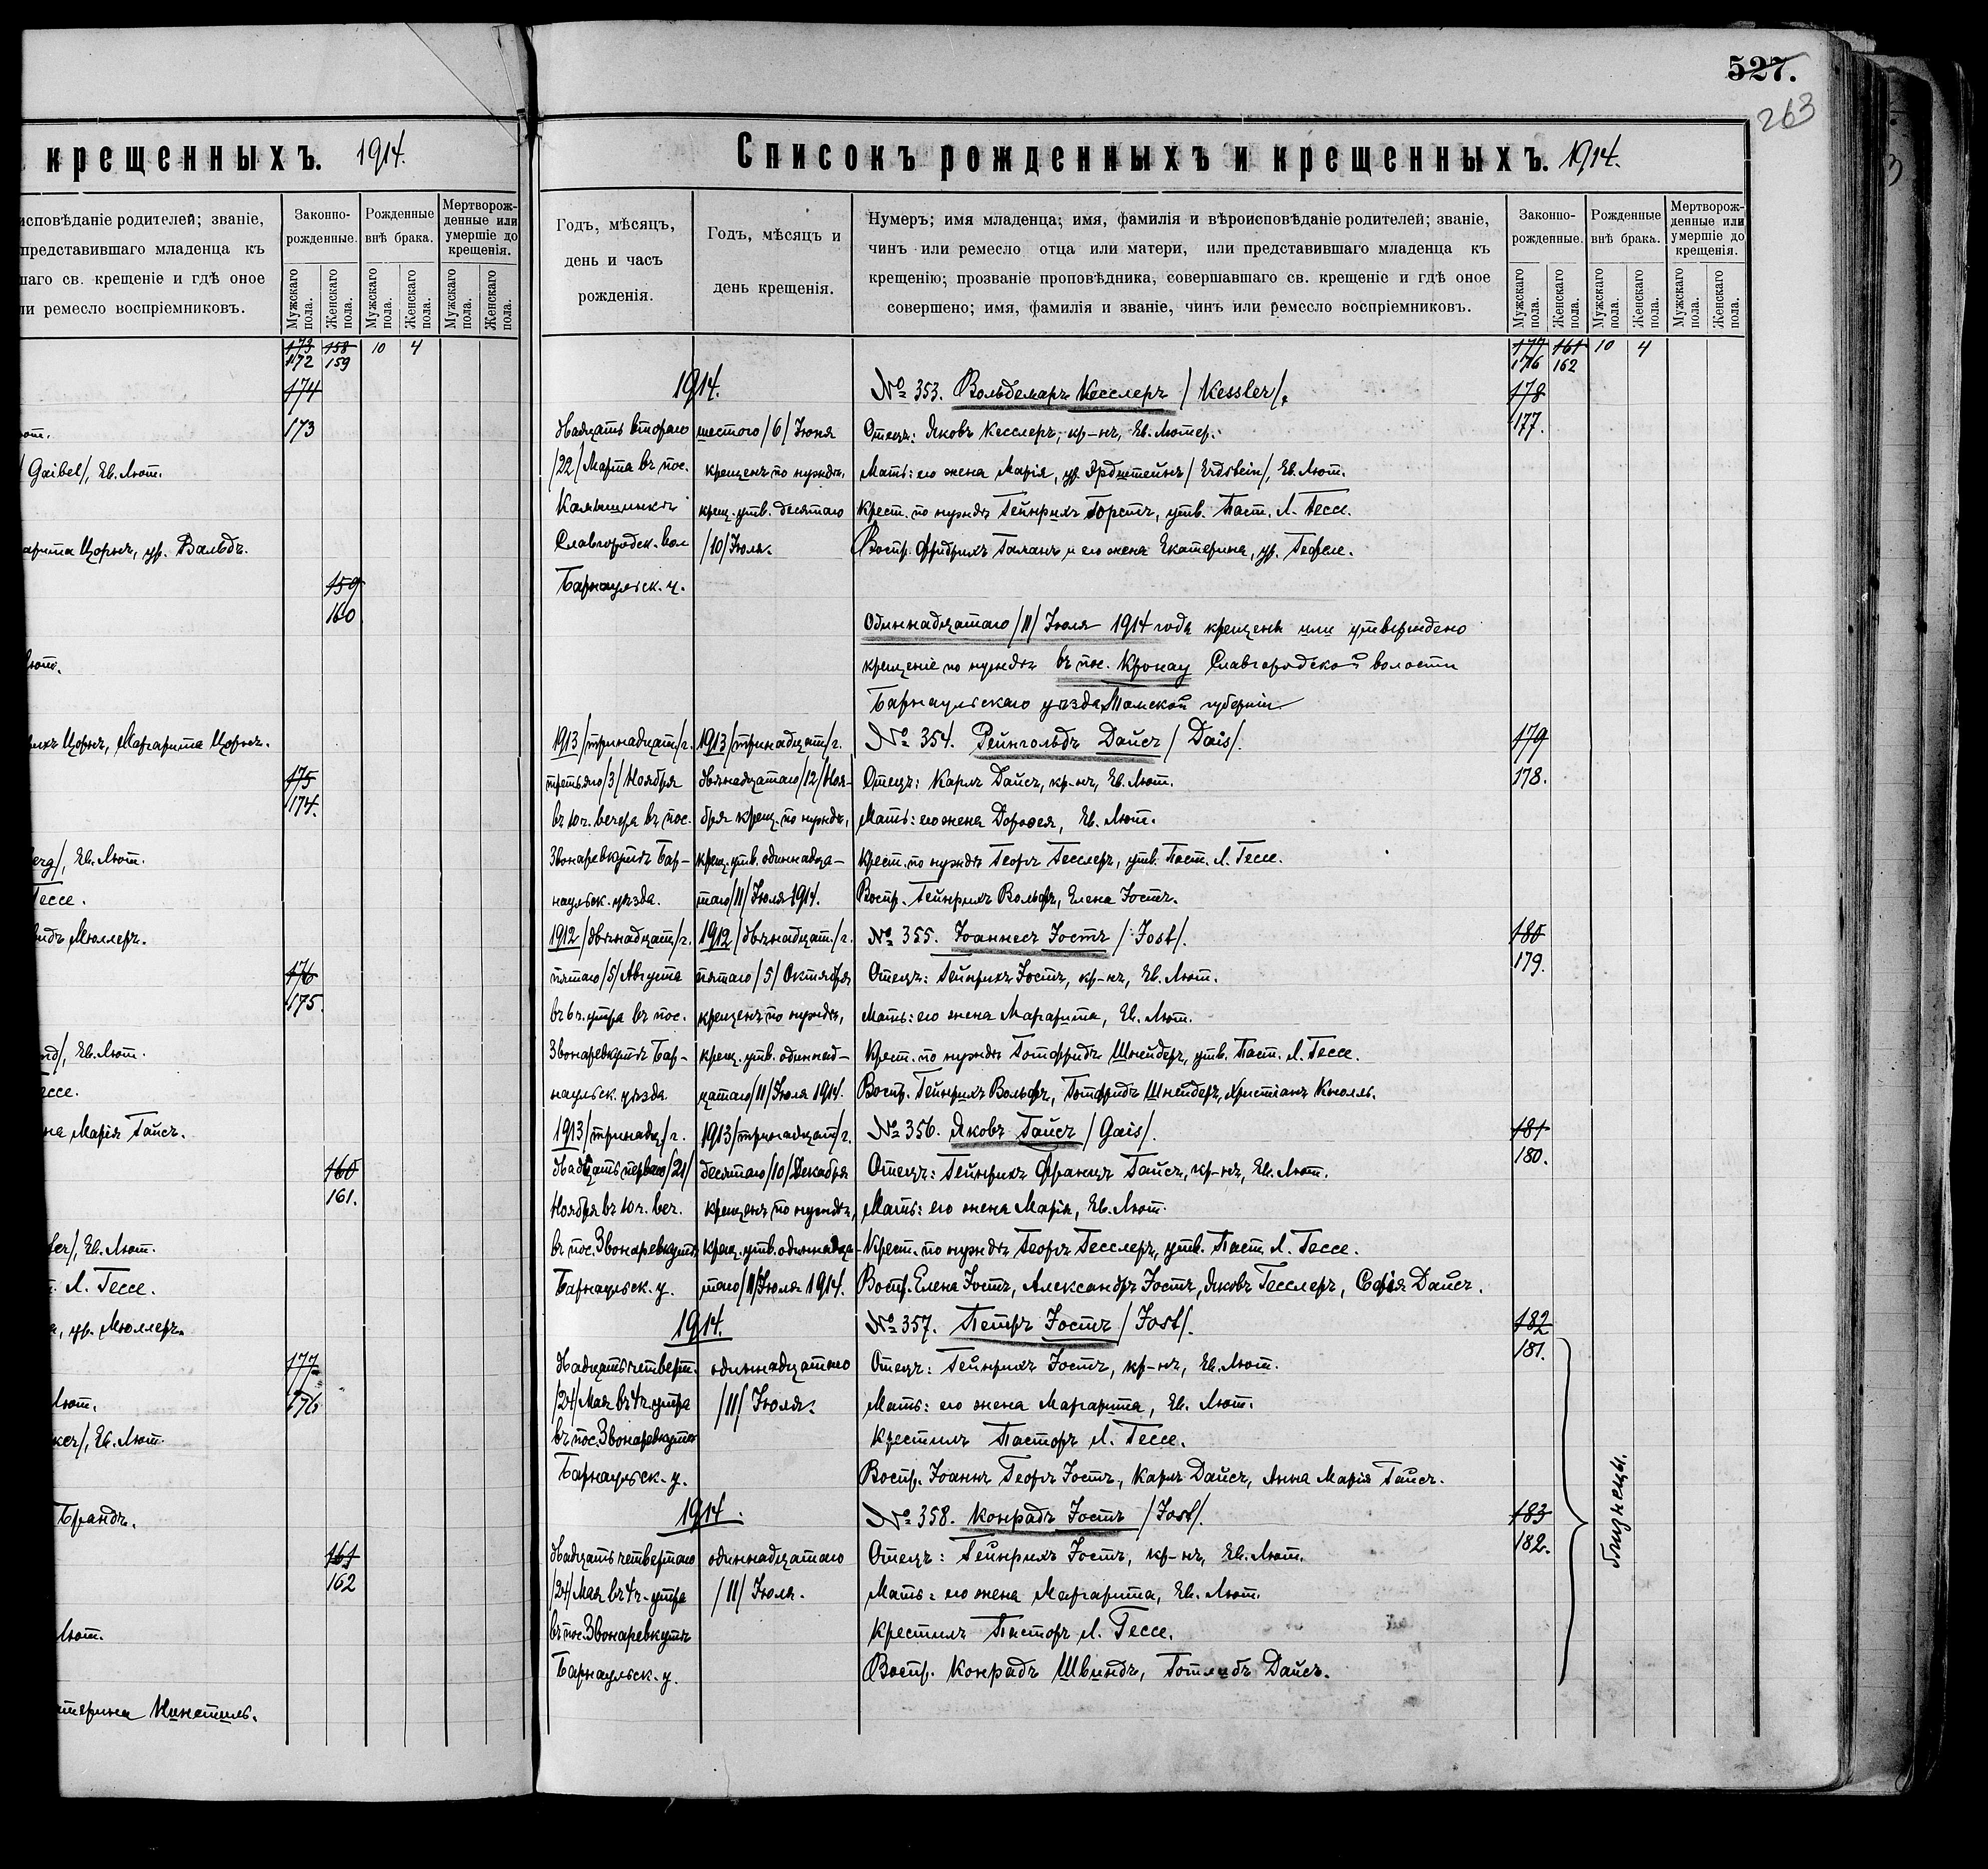 крещенныхъ. 1914.
исповѣданіе родителей; званіе,
представившаго младенца къ
шаго св. крещеніе и гдѣ оное
ли ремесло воспріемниковъ.
Законно-
рожденные.
Рожденные
внѣ брака.
Мертворож-
денные или
умершіе до
крещенія.
Мужскаго пола.
Женскаго пола.
Мужскаго пола.
Женскаго пола.
Мужскаго пола.
Женскаго пола.
173 158 10 4
172 159
174
173
Gaibel/, Ев. Лют.
арита Цорнъ, ур. Вальдъ.
159
160
Лют.
рихъ Цорнъ, Маргарита Цорнъ.
175
174.
berg/, Ев. Лют.
Гессе.
видъ Мюллеръ.
176
175.
nd/, Ев. Лют.
Гессе.
на Марія Гайсъ.
160
161.
fer/, Ев. Лют.
Л. Гессе.
а, ур. Мюллеръ.
177
Лют. 176
ker/, Ев. Лют.
Брандъ.
161
162
Лют.
атерина
527.
263
Списокъ рожденныхъ и крещенныхъ. 1914.
Годъ, мѣсяцъ,
день и часъ
рожденія.
Годъ, мѣсяцъ и
день крещенія.
Нумеръ; имя младенца; имя, фамилія и вѣроисповѣданіе родителей; званіе,
чинъ или ремесло отца или матери, или представившаго младенца къ
крещенію; прозваніе проповѣдника, совершавшаго св. крещеніе и гдѣ оное
совершено; имя, фамилія и званіе, чинъ или ремесло воспріемниковъ.
Законно-
рожденные.
Рожденные
внѣ брака.
Мертворож-
денные или
умершіе до
крещенія.
Мужскаго пола.
Женскаго пола.
Мужскаго пола.
Женскаго пола.
Мужскаго пола.
Женскаго пола.
177 161 10 4
176 162
1914. № 353. Вольдемаръ Кесслеръ /Kessler/. 178
двадцать второго шестого /6/ Іюня Отецъ: Яковъ Кесслеръ, кр-нъ, Ев. Лютер. 177.
/22/ Марта въ пос. крещенъ по нуждѣ, Мать: его жена Марія, ур. Эрдштейнъ /Erdstein/, Ев. Лют.
крещ. утв. десятаго Крест. по нуждѣ Гейнрихъ Горстъ, утв. Паст. Л. Гессе.
Славгородск. вол /10/ Іюля. Воспр. Фридрихъ Гаманъ и его жена Екатерина, ур. Гефеле.
Барнаульск. у.
Одиннадцатаго /11/ Іюля 1914 года крещены или утверждено
крещеніе по нуждѣ въ пос. Кронау Славгородской волости
Барнаульскаго уѣзда, Томской губерніи
1913 /тринадцат/ г. 1913 /тринадцат/ г. № 354. Рейнгольдъ Дайсъ /Dais/. 179
третьяго /3/ Ноября двѣнадцатаго /12/ Ноя- Отецъ: Карлъ Дайсъ, кр-нъ, Ев. Лют. 178.
въ 10 ч. вечера въ пос. бря крещ. по нуждѣ, Мать: его жена Доротея, Ев. Лют.
Звонаревкутъ Бар- крещ. утв. одиннадца- Крест. по нуждѣ Георгъ Гесслеръ, утв. Паст. Л. Гессе.
наульск. уѣзда. таго /11/ Іюля 1914. Воспр. Гейнрихъ Вольфъ, Елена Іостъ.
1912 /двѣнадцат/ г. 1912 /двѣнадцат./ г. № 355. Іоаннесъ Іостъ /Jost/. 180
пятаго /5/ Августа пятаго /5/ Октября Отецъ: Гейнрихъ Іостъ, кр-нъ, Ев. Лют. 179.
въ 6 ч. утра въ пос. крещенъ по нуждѣ, Мать: его жена Маргарита, Ев. Лют.
Звонаревкутъ Бар- крещ. утв. одиннад- Крест. по нуждѣ Готфридъ Шнейдеръ, утв. Паст. Л. Гессе.
наульск. уѣзда цатаго /11/ Іюля 1914. Воспр. Гейнрихъ Вольфъ, Готфридъ Шнейдеръ, Христіанъ Кноль.
1913 /тринадц/ г. 1913 /тринадцат/ г. № 356. Яковъ Гайсъ /Gais/. 181
двадцать перваго /21/ десятаго /10/ Декабря Отецъ: Гейнрихъ Францъ Гайсъ, кр-нъ, Ев. Лют. 180.
Ноября въ 10 ч. веч. крещенъ по нуждѣ, Мать: его жена Марія, Ев. Лют.
въ пос. Звонаревкутъ крещ. утв. одиннадца- Крест. по нуждѣ Георгъ Гесслеръ, утв. Паст. Л. Гессе.
Барнаульск. у. таго /11/ Іюля 1914. Воспр. Елена Іостъ, Александръ Іостъ, Яковъ Гесслеръ, Софія Дайсъ.
1914. № 357. Петръ Іостъ /Jost/. 182
двадцать четверт. одиннадцатаго Отецъ: Гейнрихъ Іостъ, кр-нъ, Ев. Лют. 181.
/24/ Мая въ 4 ч. утра /11/ Іюля. Мать: его жена Маргарита, Ев. Лют.
въ пос. Звонаревкутъ Крестилъ Пасторъ Л. Гессе.
Барнаульск. у. Воспр. Іоаннъ Георгъ Іостъ, Карлъ Дайсъ, Анна Марія Гайсъ.
близнецы.
1914. № 358. Конрадъ Іостъ /Jost/. 183
двадцать четвертаго одиннадцатаго Отецъ: Гейнрихъ Іостъ, кр-нъ, Ев. Лют. 182.
/24/ Мая въ 4 ч. утра /11/ Іюля. Мать: его жена Маргарита, Ев. Лют.
въ пос. Звонаревкутъ Крестилъ Пасторъ Л. Гессе.
Барнаульск. у. Воспр. Конрадъ Швиндъ, Готлибъ Дайсъ.